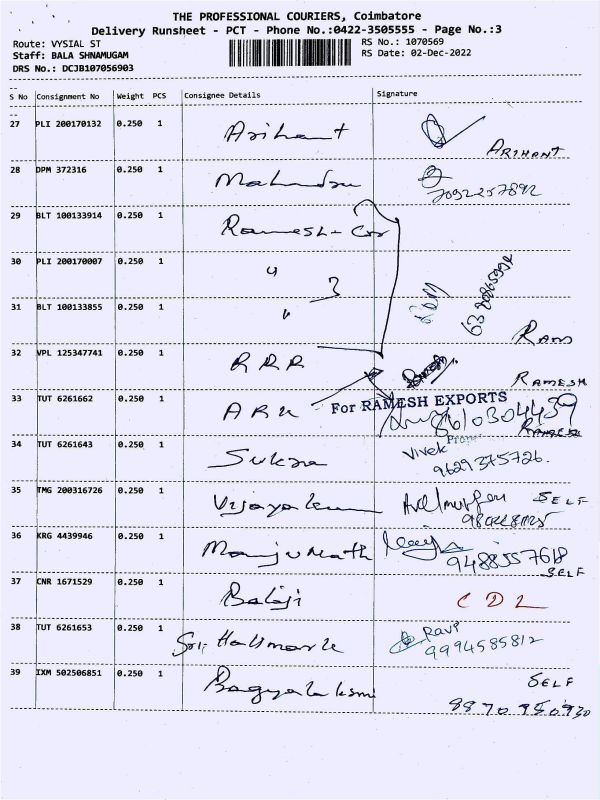 THE PROFESSIONAL COURIERS, Coimbatore
Delivery Runsheet - PCT - Phone No.:0422-3505555 - Page No.:3
Route: VYSIAL ST
RS No.: 1070569
Staff: BALA SHNAMUGAM
RS Date: 02-Dec-2022
DRS No.: DCJB107056903
S No Consignment No Weight PCS Consignee Details Signature
27 PLI 200170132 0.250 1 Arihant
ARIHANT
28 DPM 372316 0.250 1 Mahendra
7092257892
29 BLT 100133914 0.250 1 Ramesh - Cor
30 PLI 200170007 0.250 1 "
31 BLT 100133855 0.250 1 "
RAM
32 VPL 125347741 0.250 1 R R R
RAMESH
For RAMESH EXPORTS
33 TUT 6261662 0.250 1 ARU
8610304439
34 TUT 6261643 0.250 1 Vivek
9629375726.
35 TMG 200316726 0.250 1 Vijayakum SELF
36 KRG 4439946 0.250 1 Manjunath
9488557618
SELF
37 CNR 1671529 0.250 1 Balaji CDL
38 TUT 6261653 0.250 1 Sri Hallmark Ravi
9994585812
39 IXM 502506851 0.250 1 Bagyalaksmi SELF
8870950930